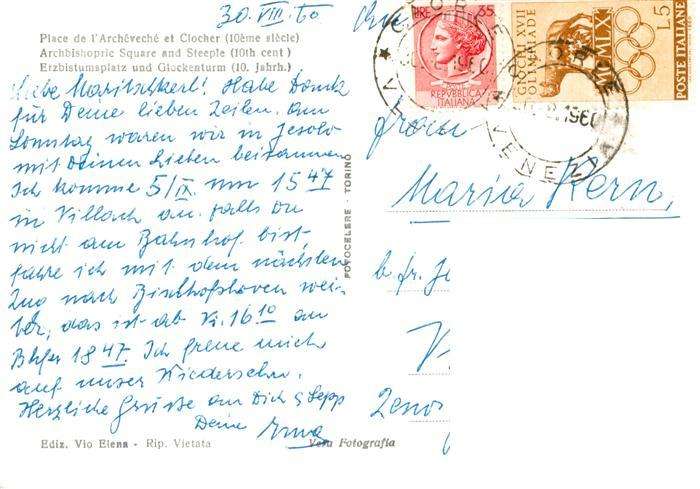 30.VIII.60
Place de l'Archêveché et Clocher (10ème siècle)
Archbishopric Square and Steeple (10th cent)
Erzbistumsplatz und Glockenturm (10. Jahrh.)
Liebe Maritschkerl! Habe Dank
für Deine lieben Zeilen. Am
Sonntag waren wir in Jesolo
mit Deinen Lieben beisammen
Ich komme 5/IX. um 15 47
in Villach an. falls Du
nicht am Bahnhof bist,
fahre ich mit dem nächsten
Zug nach Bischofshoven wei-
ter, das ist ab Vi. 16 10 an
Bhfen 18 47. Ich freue mich
auf unser Wiedersehn.
Herzliche Grüße an Dich & Sepp
Deine Erna
Ediz. Vio Elena - Rip. Vietata
Vera Fotografia
FOTOCELERE - TORINO
An
Frau
Maria Kern,
b fr. Je
V
Zenos
LIRE 35
REPVBBLICA
ITALIANA
GIOCHI XVII
OLIMPIADE
MCMLX
L.5
POSTE ITALIANE
CAORLE
1960
VENEZIA
CAORLE
8.1960
VENEZIA